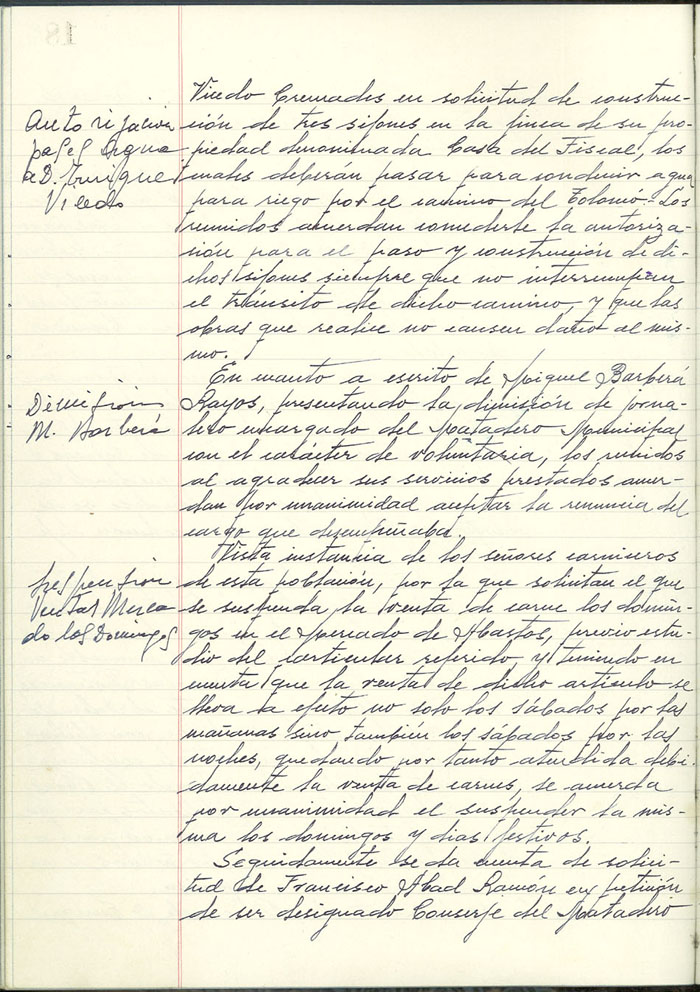 Vicedo Cremades en solicitud de construc-
ción de tres sifones en la finca de su pro-
piedad denominada Casa del Fiscal, los
cuales deberan pasar para conducir agua
para riego por el camino del Colomó.- Los
reunidos acuerdan concederle la autoriza-
ción para el paso y construcción de di-
chos sifones siempre que no interrumpan
el tránsito de dicho camino, y que las
obras que realice no causen daño al mis-
mo.
Autorización
pases agua
a D. Enrique
Vicedo
En cuanto a escrito de Miguel Barberá
Payos, presentando la dimisión de jorna-
lero encargado del Matadero Municipal
con el carácter de voluntaria, los reunidos
al agradecer sus servicios prestados acuer-
dan por unanimidad aceptar la renuncia del
cargo que desempeñaba.
Dimisión
M. Barberá
Vista instancia de los señores carniceros
de esta población, por la que solicitan el que
se suspenda la venta de carne los domin-
gos en el Mercado de Abastos, previo estu-
dio del particular referido, y teniendo en
cuenta que la venta de dicho articulo se
lleva a efecto no solo los sábados por las
mañanas sino también los sábados por las
noches, quedando por tanto atendida debi-
damente la venta de carnes, se acuerda
por unanimidad el suspender la mis-
ma los domingos y dias festivos.
Suspensión
Ventas Merca
do los Domingos
Seguidamente se da cuenta de solici-
tud de Francisco Abad Ramón en petición
de ser designado Conserje del Matadero